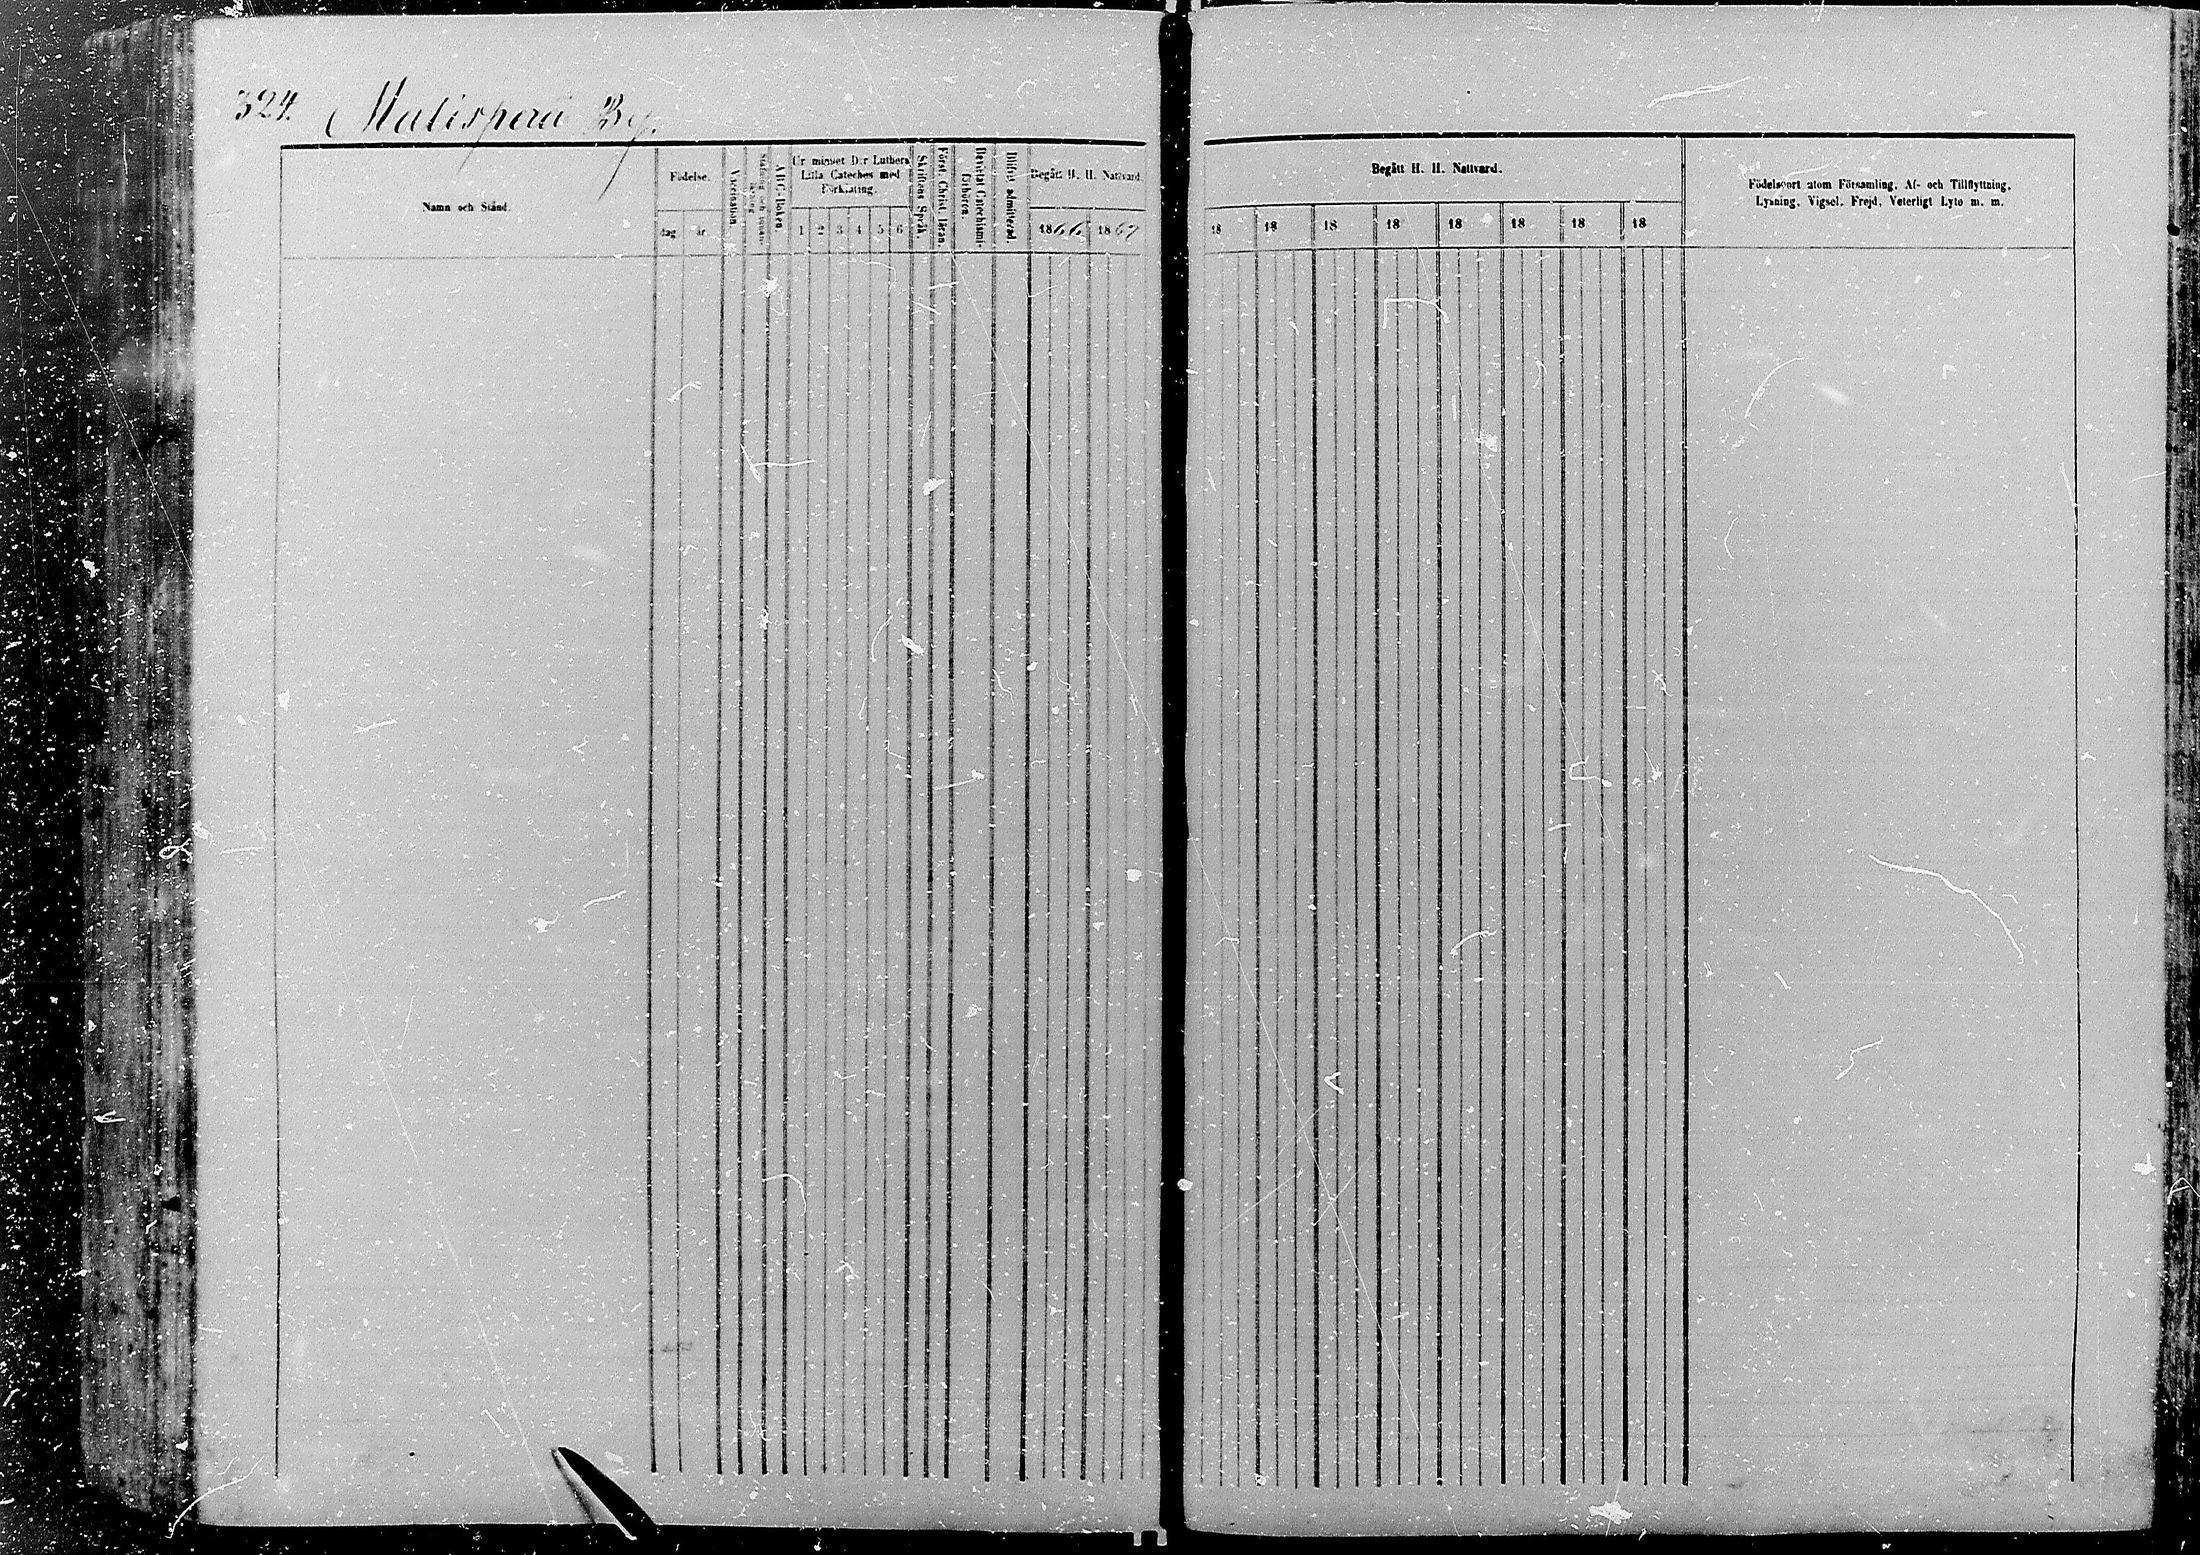 324. Matisperä By.
Namn och Stånd.
Födelse.
dag
år
Vaccination.
ABC-Boken.
Ur minnet D:r Luthers
Lilla Cateches med
Förklaring.
1 2 3 4 5 6
Skriftens Språk.
Först. Christ. Läran.
Bevistat Catechismi-
förhören.
Blifvit admitterad.
Begått H. H. Nattvard.
1866 1867
Begått H. H. Nattvard.
18 18 18 18 18 18 18 18
Födelseort utom Församling, Af- och Tillflyttning,
Lysning, Vigsel, Frejd, Veterligt Lyte m. m.